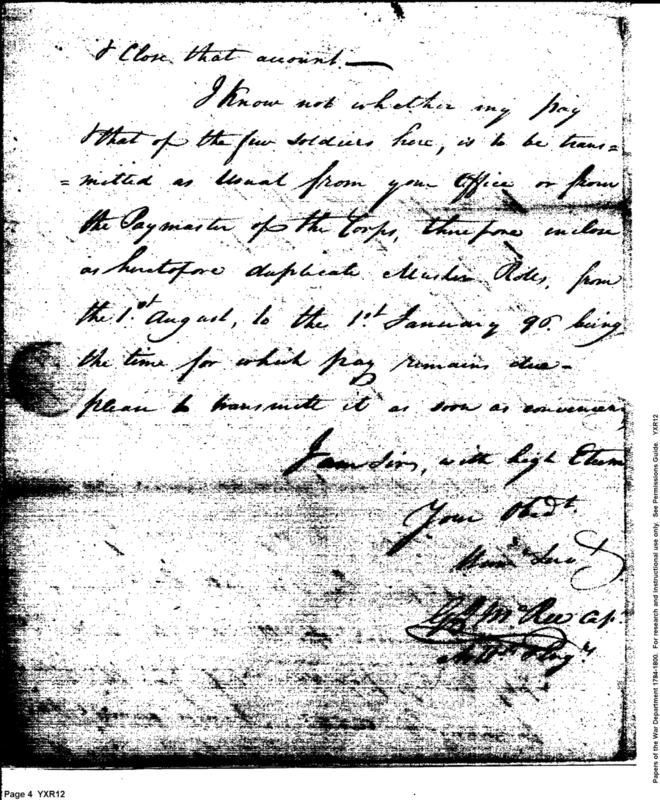 & Close that account.—
I Know not whether my pay
& that of the few soldiers here, is to be trans=
=mitted as Usual from your Office or from
the Paymaster of the Corps, therefore inclose
as heretofore duplicate Muster Rolls, from
the 1.st August, to the 1.st January 96. being
the time for which pay remains due-
please to transmitt it as soon as convenient
I am Sirs, with high Esteem
Your Obed.t
Hum.e Serv.t
McRee Cap.
Papers of the War Department 1784-1800. For research and instructional use only. See Permissions Guide. YXR12
Page 4 YXR12